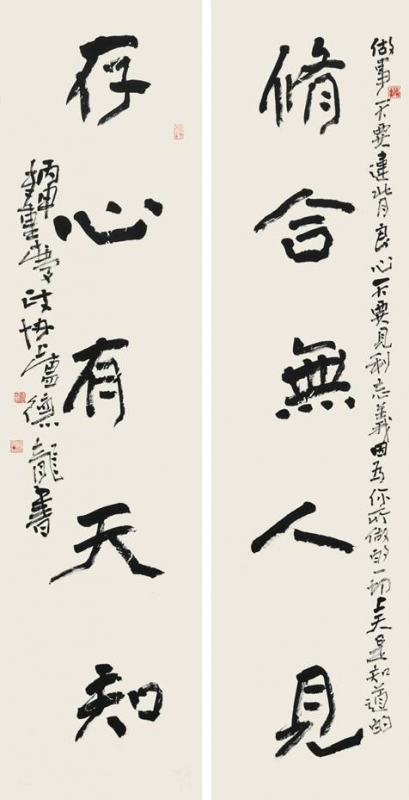 做事不要違背良心不要見利忘義因為你所做的一切上天是知道的
脩合無人見
存心有天知
丙申重慶政協盧德龍書